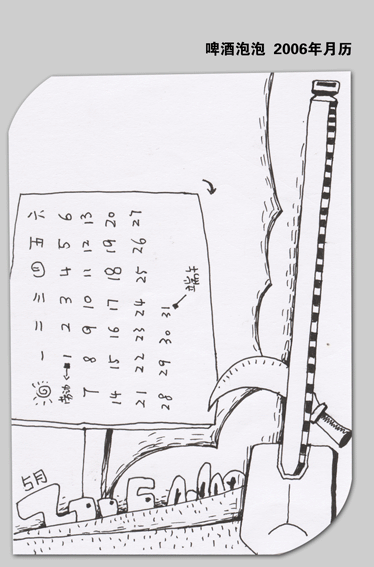 啤酒泡泡 2006年月历
一 二 三 四 五 六
劳动 1 2 3 4 5 6
7 8 9 10 11 12 13
14 15 16 17 18 19 20
21 22 23 24 25 26 27
28 29 30 31 端午
5月